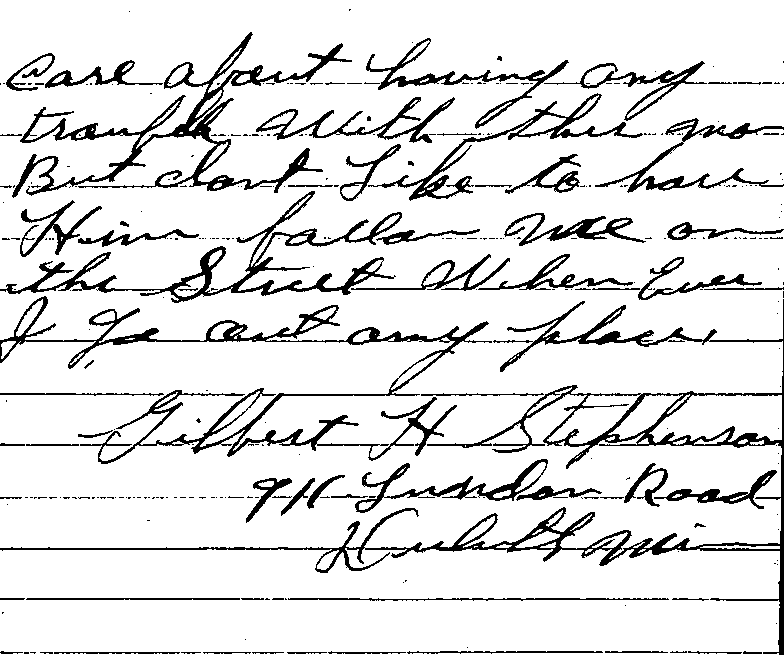 Care about having any
trouble With this ma
But dont Like to have
Him fallow me on
the Street When Ever
I Go out any place,
Gilbert H Stephenson
911 London Road
Duluth Min